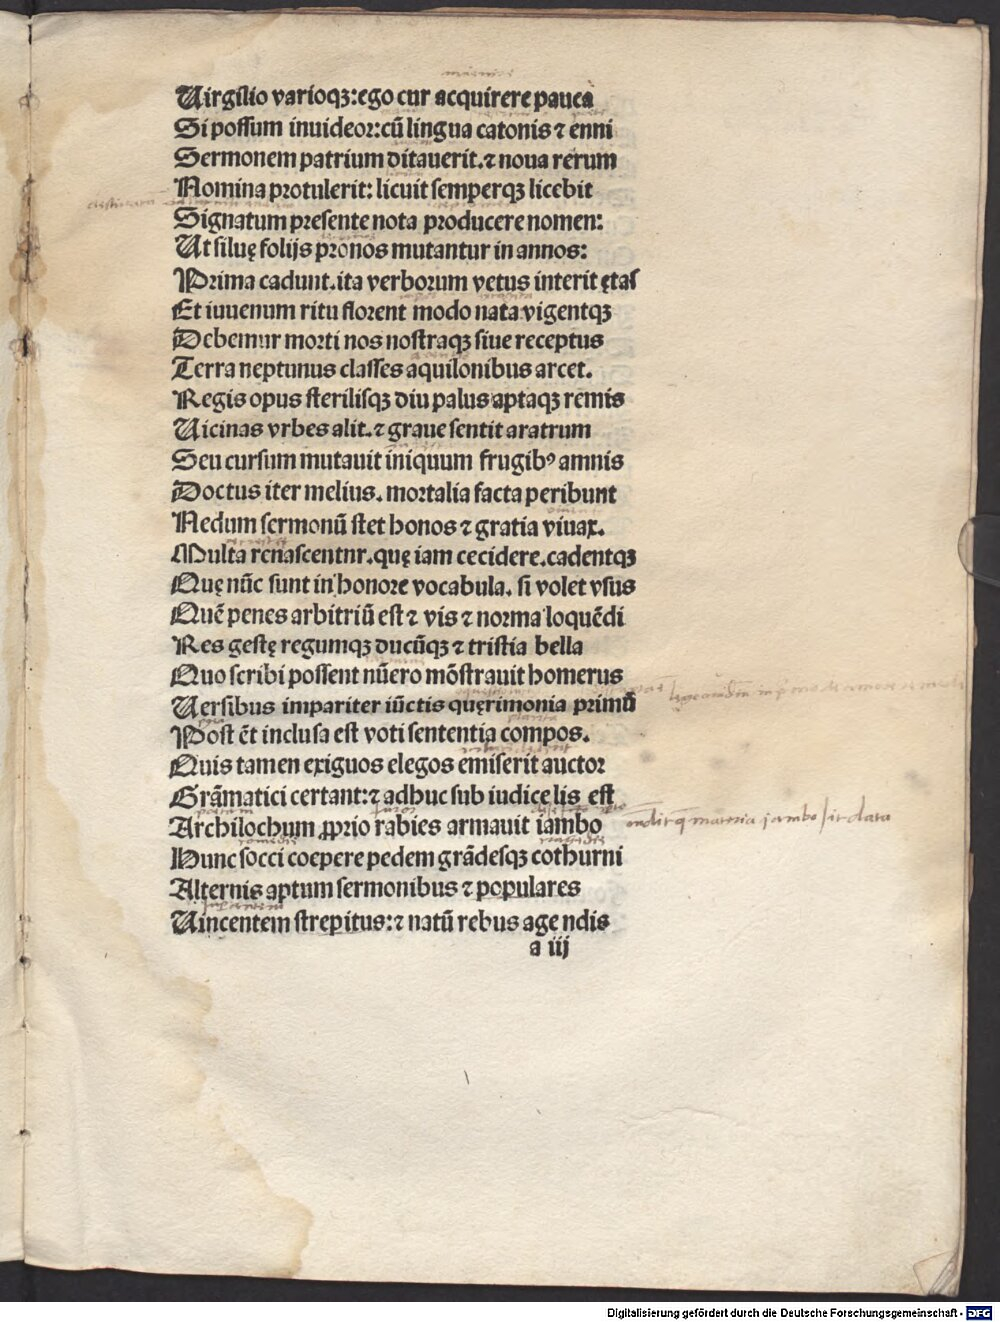 Uirgilio varioqꝫ:ego cur acquirere pauca
Si possum inuideor:cū lingua catonis ⁊ enni
Sermonem patrium ditauerit.⁊ noua rerum
Nomina protulerit: licuit semperqꝫ licebit
Signatum presente nota producere nomen:
Ut siluę folijs pronos mutantur in annos:
Prima cadunt.ita verborum vetus interit ętas
Et iuuenum ritu florent modo nata vigentqꝫ
Debemur morti nos nostraqꝫ siue receptus
Terra neptunus classes aquilonibus arcet.
Regis opus sterilisqꝫ diu palus aptaqꝫ remis
Uicinas vrbes alit.⁊ graue sentit aratrum
Seu cursum mutauit iniquum frugibꝰ amnis
Doctus iter melius. mortalia facta peribunt
Nedum sermonū stet honos ⁊ gratia viuax.
Multa renascentnr.quę iam cecidere.cadentqꝫ
Quę nūc sunt in honore vocabula. si volet vsus
Quē penes arbitriū est ⁊ vis ⁊ norma loquēdi
Res gestę regumqꝫ ducūqꝫ ⁊ tristia bella
Quo scribi possent nūero mōstrauit homerus
Uersibus impariter iūctis quęrimonia primū
Post ēt inclusa est voti sententia compos.
Quis tamen exiguos elegos emiserit auctor
Grāmatici certant:⁊ adhuc sub iudice lis est
Archilochum ꝓprio rabies armauit iambo
Hunc socci coepere pedem grādesqꝫ cothurni
Alternis aptum sermonibus ⁊ populares
Uincentem strepitus:⁊ natū rebus age ndis
a iij
Digitalisierung gefördert durch die Deutsche Forschungsgemeinschaft - DFG